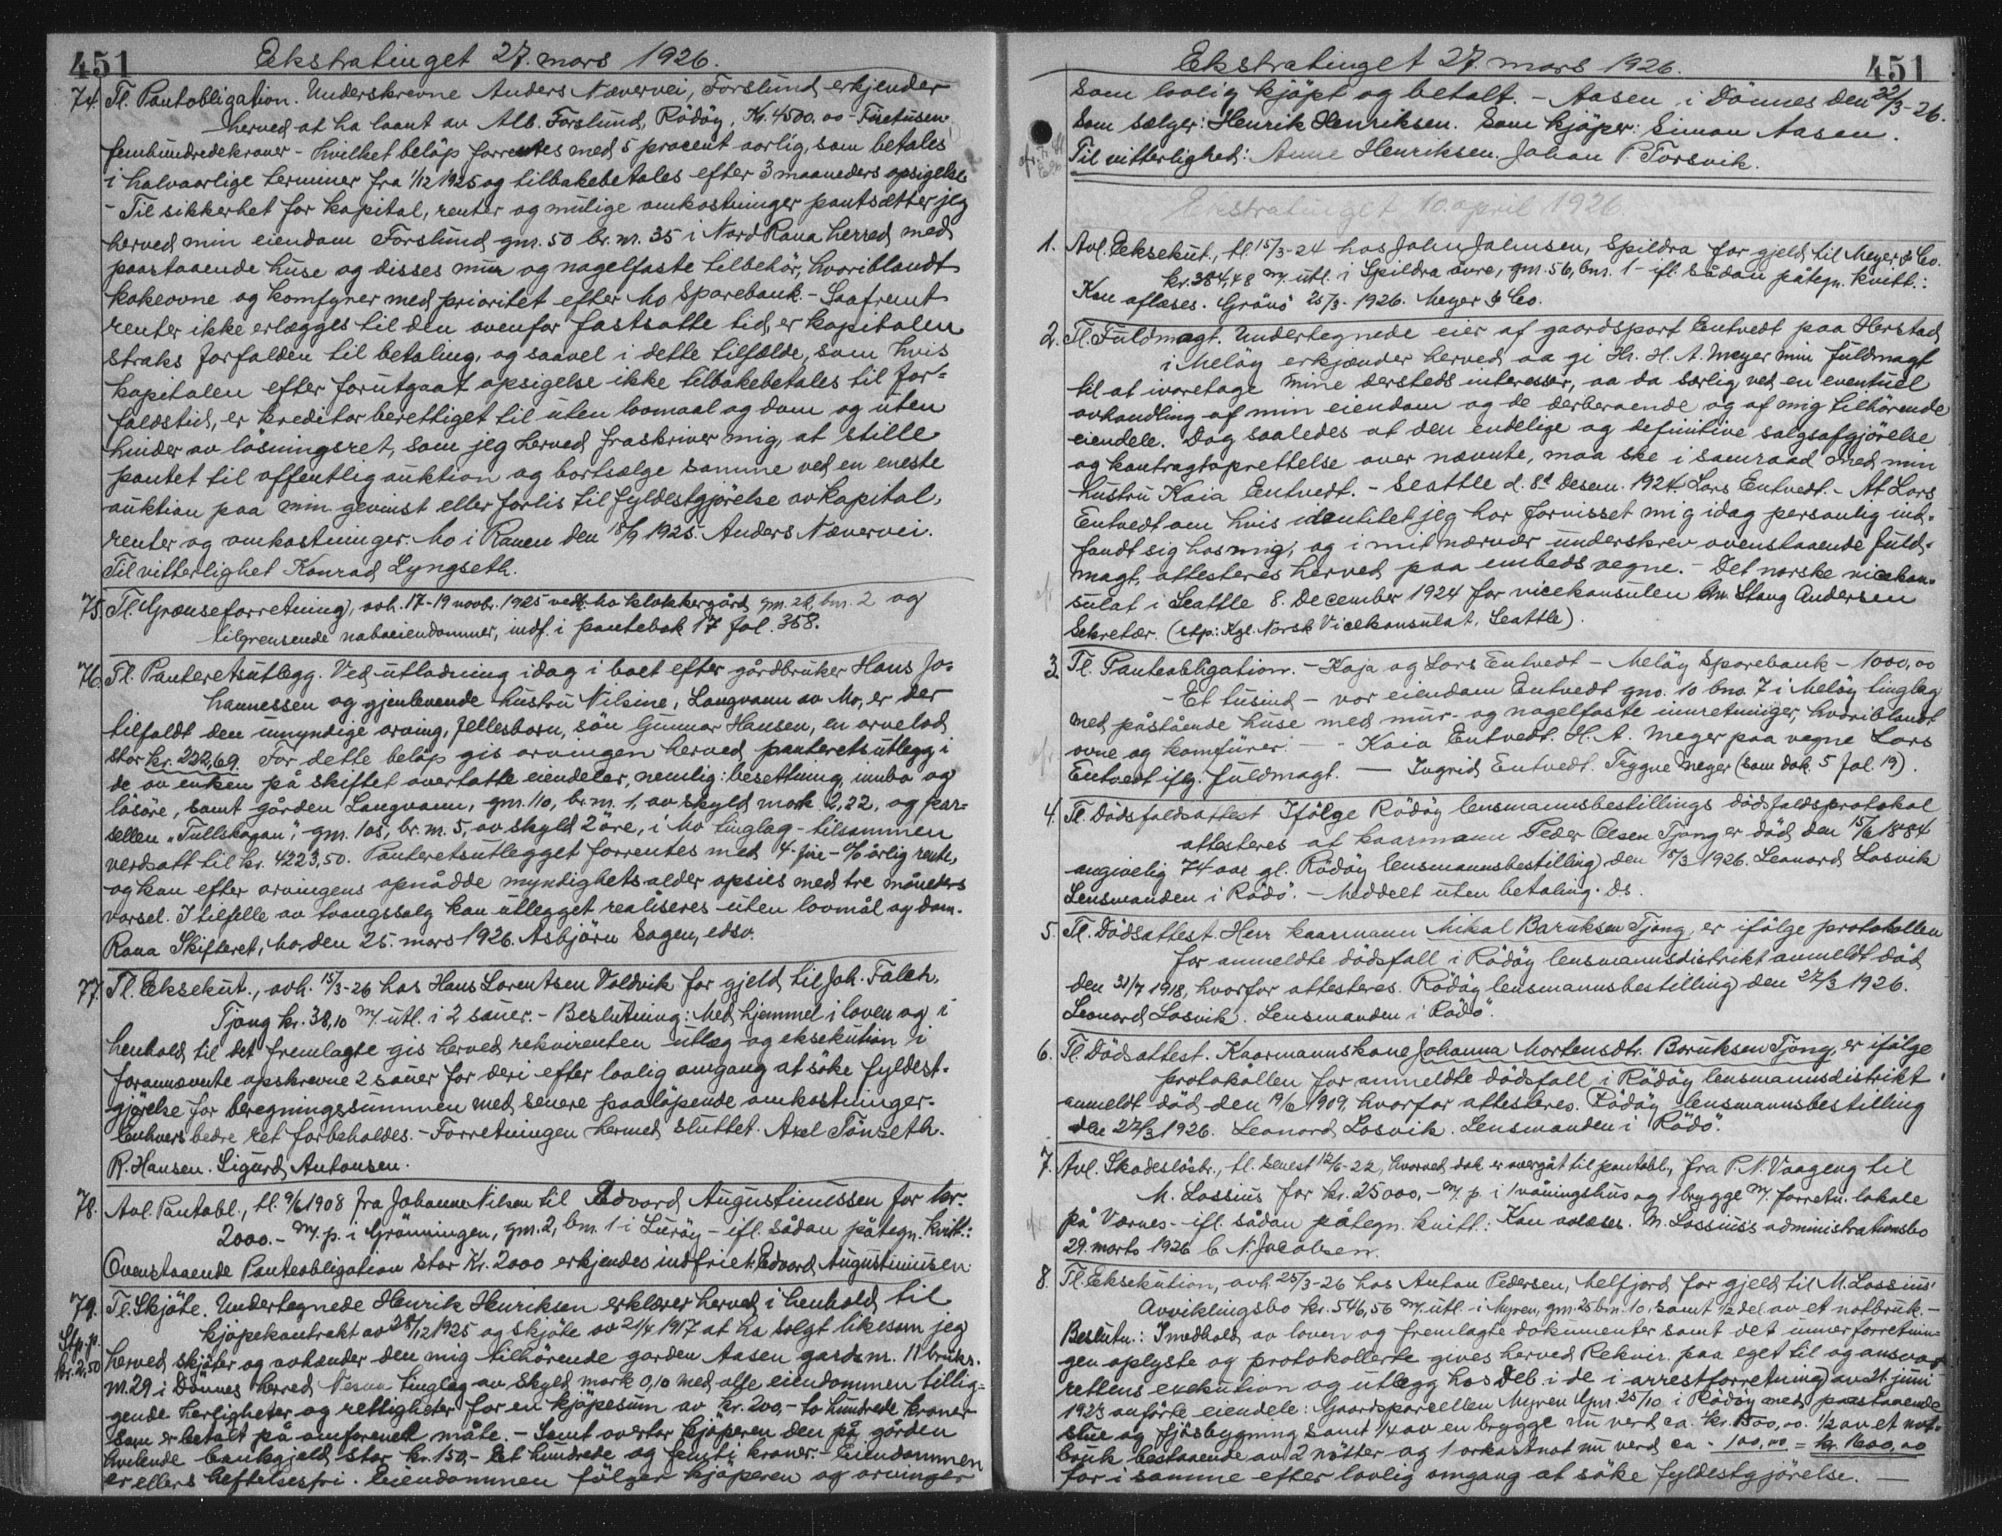 451
Ekstratinget 27. mars 1926.
74. Tl. Pantobligation. Underskrevne Anders Nævervei, Forslund erkjender
herved at ha laant av Alb. Forslund, Rödöy, Kr. 4500.00 - Firetusen
fembundredekroner - hvilket belöp forrentes med 5 procent aarlig, som betales
i halvaarlige terminer fra 1/12 1925 og tilbakebetales efter 3 maaneders opsigelse
- Til sikkerhet for kapital, renter og mulige omkostninger pantsætter jeg
herved min eiendom Forslund gnr. 50 br.nr. 35 i Nord Rana herred med
paastaaende huse og disses mur og nagelfaste tilbehör, hvoriblandt
kakeovne og komfyrer med prioritet efter Mo Sparebank. - Saafremt
renter ikke erlægges til den ovenfor fastsatte tid, er kapitalen
straks forfalden til betaling, og saavel i dette tilfælde, som hvis
kapitalen efter forutgaat opsigelse ikke tilbakebetales til for-
faldstid, er kreditor berettiget til uten lovmaal og dom og uten
hinder av lösningsret, som jeg herved fraskriver mig, at stille
pantet til offentlig auktion og bortsælge samme ved en eneste
auktion paa min gevinst eller forlis til fyldestgjörelse av kapital,
renter og omkostninger. Mo i Ranen den 18/9 1925. Anders Nævervei.
Til vitterlighet Konrad Lyngseth.
75. Tl. Grænseforretning, avh. 17-19 novbr. 1925 vedk. Mo klokkergård gnr. 22, bnr. 2 og
tilgrensende naboeiendommer, indf. i pantebok 17 fol. 358.
76. Tl. Panteretsutlegg. Ved utlodning idag i boet efter gårdbruker Hans Jo-
hannessen og gjenlevende hustru Nilsine, Langvann av Mo, er der
tilfaldt den umyndige arving, fellesbarn, sön Gunnar Hansen, en arvelod
stor kr. 222,69. For dette belöp gis arvingen herved panteretsutlegg i
de av enken på skiftet overtatte eiendeler, nemlig: besettning, innbo og
lösöre, samt gården Langvann, gnr. 110, br.nr. 1, av skyld mark 2,22, og par-
sellen "Tullskogen", gnr. 105, br.nr. 5, av skyld 2 öre, i Mo tinglag - tilsammen
verdsatt til kr. 4223,50. Panteretsutlegget forrentes med 4 - fire - % årlig rente,
og kan efter arvingens opnådde myndighetsalder opsies med tre måneders
varsel. I tilfelle av tvangssalg kan utlegget realiseres uten lovmål og dom.
Rana Skifteret, Mo, den 25. mars 1926. Asbjörn Sagen, edsv.
77. Tl. Eksekut., avh. 15/3-26 hos Hans Lorentsen Valdvik for gjeld til Joh. Falch,
Tjong kr. 38,10 m/ utl. i 2 sauer. - Beslutning: Med hjemmel i loven og i
henhold til det fremlagte gis herved rekvirenten utlæg og eksekution i
forannævnte opskrevne 2 sauer for deri efter lovlig omgang at söke fyldest-
gjörelse for beregningssummen med senere paalöpende omkostninger.
Enhvers bedre ret forbeholdes. - Forretningen hermed sluttet. Axel Tönseth.
R. Hansen. Sigurd Antonsen.
78. Avl. Pantobl., tl. 9/6 1908 fra Johanne Nilsen til Edvard Augustinussen for kr.
2000.- m/ p. i Grönningen, gnr. 2, bnr. 1 i Luröy - ifl. sådan påtegn. kvitt.:
Ovenstaaende Panteobligation stor Kr. 2000 erkjendes indfriet. Edvard Augustinusen
79. Tl. Skjöte. Undertegnede Henrik Henriksen erklærer herved i henhold til
Stp. p. kr. 2,50
kjöpekontrakt av 28/12 1925 og skjöte av 21/4 1917 at ha solgt likesom jeg
herved skjöter og avhænder den mig tilhörende garden Aasen gards nr. 11 bruks.
nr. 29 i Dönnes herred Nesna tinglag av skyld mark 0,10 med alle eiendommen tillig-
gende herligheter og rettigheter for en kjöpesum av kr. 200,- to hundrede kroner
som er betalt på omforenet måte. - Samt overtar kjöperen den på gården
hvilende bankgjeld stor kr. 150,- Et hundrede og femti kroner. - Eiendommen
er ellers heftelsesfri. Eiendommen fölger kjöperen og arvinger
451
Ekstratinget 27. mars 1926.
som lovlig kjöpt og betalt. - Aasen i Dönnes den 22/3-26.
Som sælger: Henrik Henriksen. Som kjöper: Simon Aasen.
Til vitterlighed: Anne Henriksen. Johan P. Forsvik.
Ekstratinget 10. april 1926.
1. Avl. Eksekut., tl. 15/3-24 hos John Johnsen, Spildra for gjeld til Meyer & Co.
kr. 384,48 m/ utl. i Spildra övre, gnr. 56, bnr. 1 - ifl. sådan påtegn. kvitt.:
Kan aflæses. Grönö 25/3. 1926. Meyer & Co.
2. Tl. Fuldmagt. Undertegnede eier af gaardspart Entvedt paa Herstad
i Melöy erkjænder herved aa gi Hr. H. A. Meyer min fuldmagt
til at ivaretage mine dersteds interesser, aa da særlig ved en eventuel
avhandling af min eiendom og de derberoende og af mig tilhörende
eiendele. Dog saaledes at den endelige og definitive salgsafgjörelse
og kontragtoprettelse over nævnte, maa ske i samraad med min
hustru Kaia Entvedt. - Seattle d. 8d Desem. 1924. Lars Entvedt. - At Lars
Entvedt om hvis identitet jeg har forvisset mig idag personlig ind-
fandt sig hos mig, og i mit nærvær underskrev ovenstaaende fuld-
magt, attesteres herved paa embeds vegne. - Det norske vicekon-
sulat i Seattle 8. December 1924 for vicekonsulen Stang Andersen
Sekretær. (stp: Kgl. Norsk Vicekonsulat, Seattle).
3. Tl. Panteobligation. - Kaja og Lars Entvedt - Melöy Sparebank - 1000,00
- Et tusind - vor eiendom Entvedt gno. 10 bno. 7 i Melöy tinglag
med påstående huse med mur- og nagelfaste innretninger, hvoriblandt
ovne og komfürer. - - Kaia Entvedt. H. A. Meyer paa vegne Lars
Entvedt iflg. fuldmagt. - Ingrid Entvedt. Trygve Meyer (som dok. 5 fol. 19).
4. Tl. Dödsfaldsattest. Ifölge Rödöy lensmannsbestillings dödsfaldsprotokol
attesteres at kaarmann Peder Olsen Tjong er död den 15/6 1884
angivelig 74 aar gl. Rödöy lensmannsbestilling den 15/3 1926. Leonard Losvik
Lensmanden i Rödö. - Meddelt uten betaling. ds.
5. Tl. Dödsattest. Herr kaarmann Mikal Baruksen Tjong, er ifölge protokollen
for anmeldte dödsfall i Rödöy lensmannsdistrikt anmeldt död
den 31/7 1918, hvorfor attesteres. Rödöy lensmannsbestilling den 27/3 1926.
Leonard Losvik. Lensmanden i Rödö.
6. Tl. Dödsattest. Kaarmannskone Johanna Mortensdtr. Baruksen Tjong, er ifölge
protokollen for anmeldte dödsfall i Rödöy lensmannsdistrikt
anmeldt död den 19/6 1909, hvorfor attesteres. Rödöy lensmannsbestilling
den 27/3 1926. Leonard Losvik. Lensmanden i Rödö.
7. Avl. Skadeslösbr., tl. senest 12/6-22, hvorved dok er overgåt til pantobl., fra P. N. Vaageng til
M. Lossius for kr. 25000,- m/ p. i 1 våningshus og 1 brygge m/ forretn. lokale
på Værnes - ifl. sådan påtegn. kvitt.: Kan avlæses. M. Lossius's administrationsbo
29. marts 1926 C. N. Jacobsen.
8. Tl. Eksekution, avh. 25/3-26 hos Anton Pedersen, Melfjord for gjeld til M. Lossius'
Avviklingsbo kr. 546,56 m/ utl. i Myren, gnr. 25 bnr. 10, samt 1/2 del av et notbruk. -
Beslutn.: I medhold av loven og fremlagte dokumenter samt det under forretnin-
gen oplyste og protokollerte gives herved Rekvir. paa eget til og ansvar
rettens exekution og utlegg hos Deb. i de i arrestforretning av 21. juni
1923 anförte eiendele: Gaardsparcellen Myren Gnr. 25/10 i Rödöy med paastaaende
stue og fjösbygning samt 1/4 av en brygge nu verd ca. kr. 1500,00. 1/2 av et not-
bruk bestaaende av 2 nötter og 1 orkastnot nu verd ca - 100,00 = kr. 1600,00
for i samme efter lovlig omgang at söke fyldestgjörelse. -